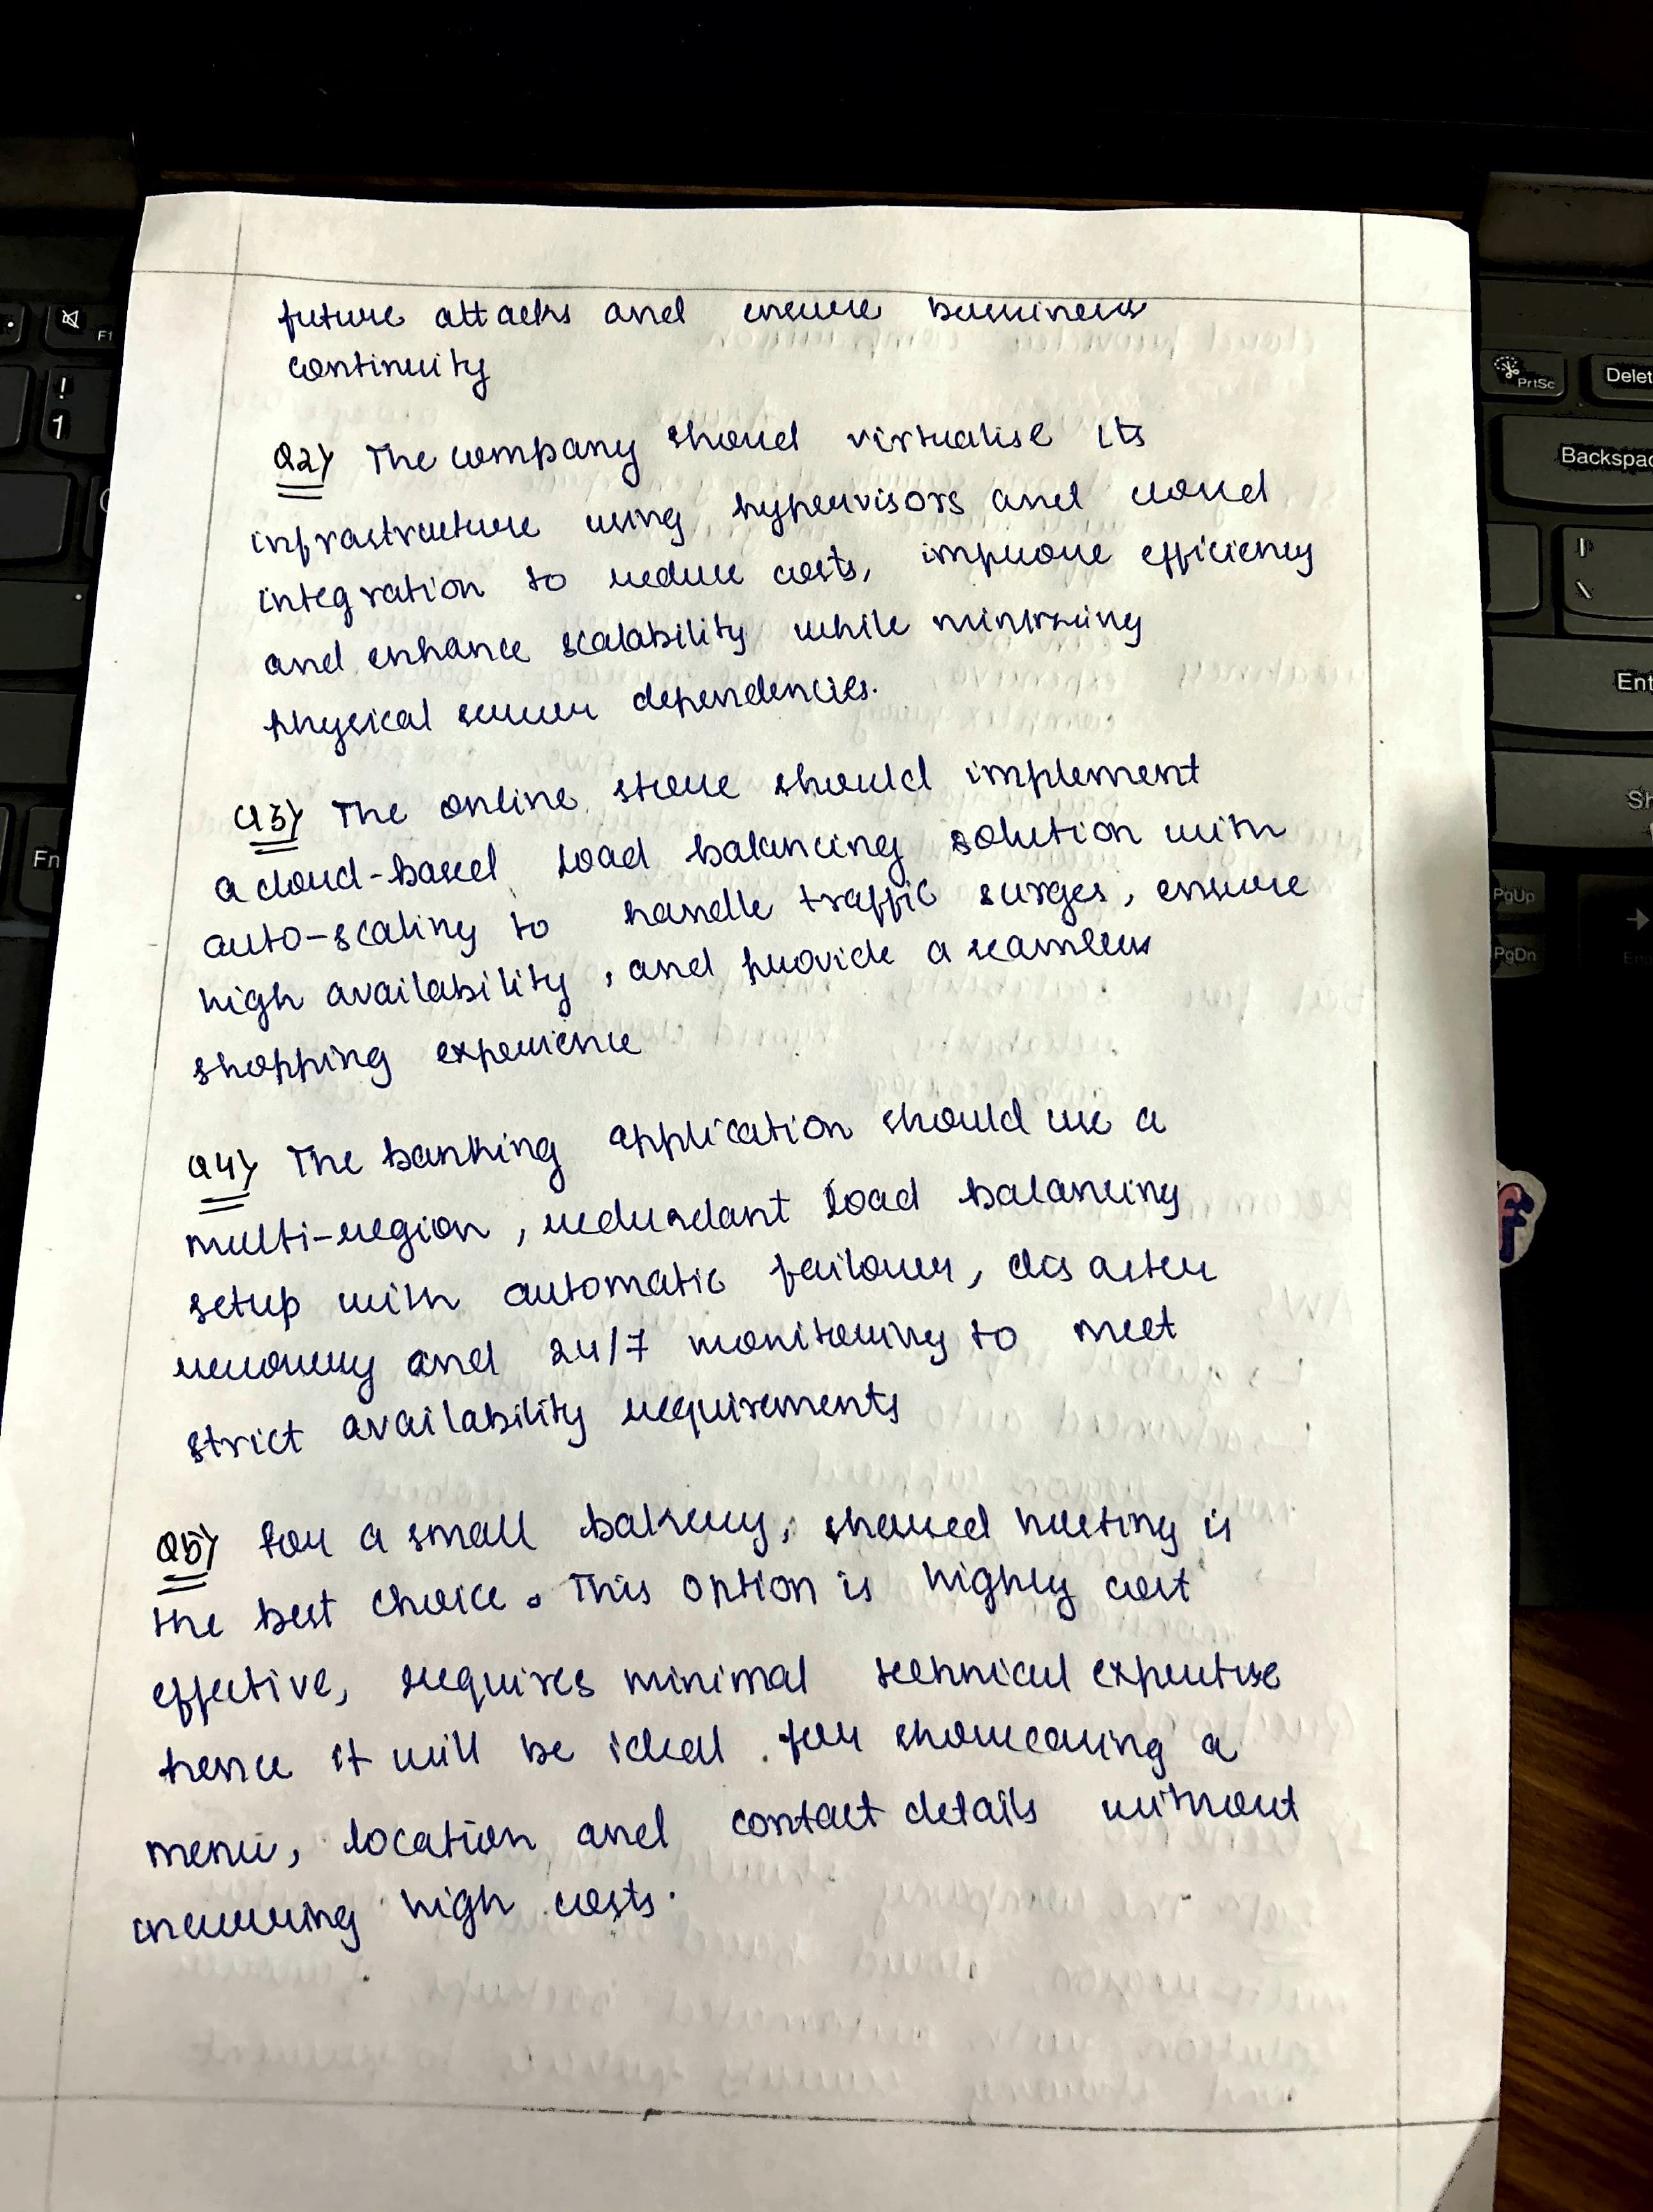 future attacks and ensure bussiness
continuity
Q2) The company should virtualise its
infrastructure using hypervisors and cloud
integration to reduce costs, improve efficiency
and enhance scalability while minimizing
physical server dependencies.
Q3) The online store should implement
a cloud-based load balancing solution with
auto-scaling to handle traffic surges, ensure
high availability, and provide a seamless
shopping experience
Q4) The banking application should use a
multi-region, redundant load balancing
setup with automatic failover, disaster
recovery and 24/7 monitoring to meet
strict availability requirements
Q5) For a small bakery, shared hosting is
the best choice. This option is highly cost
effective, requires minimal technical expertise
hence it will be ideal for showcasing a
menu, location and contact details without
incurring high costs.
F1
!
1
Fn
PrtSc
Delet
Backspac
Ent
Sh
PgUp
PgDn